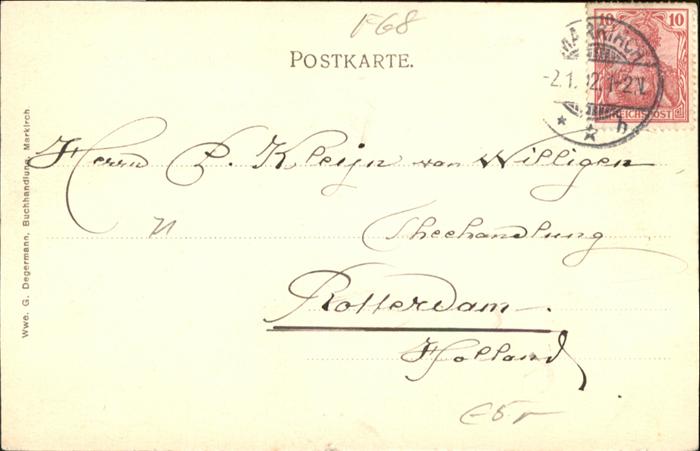 F68
POSTKARTE.
10 10
REICHSPOST
MARKIRCH
-2.1.02.1-2N.
* * b
Herrn P. Kleijn van Willigen
Theehandlung
Rotterdam.
Holland
Wwe. G. Degermann, Buchhandlung, Markirch.